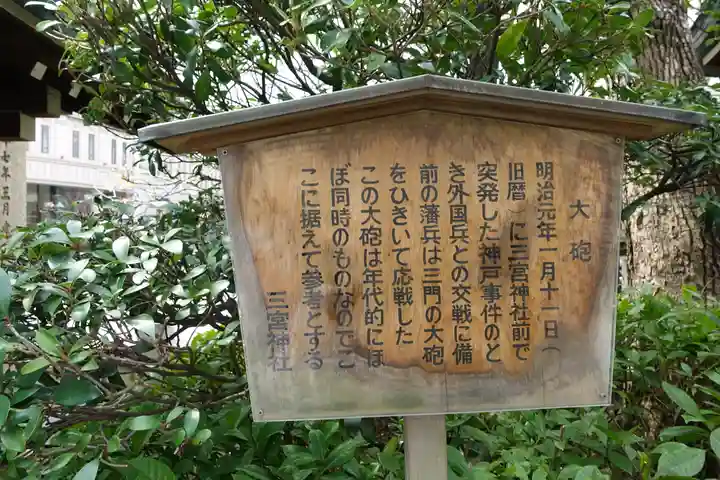 大砲
明治元年一月十一日（
旧暦　に三宮神社前で
突発した神戸事件のと
き外国兵との交戦に備
前の藩兵は三門の大砲
をひきいて応戦した
この大砲は年代的にほ
ぼ同時のものなのでこ
こに据えて参考とする
三宮神社
七年三月